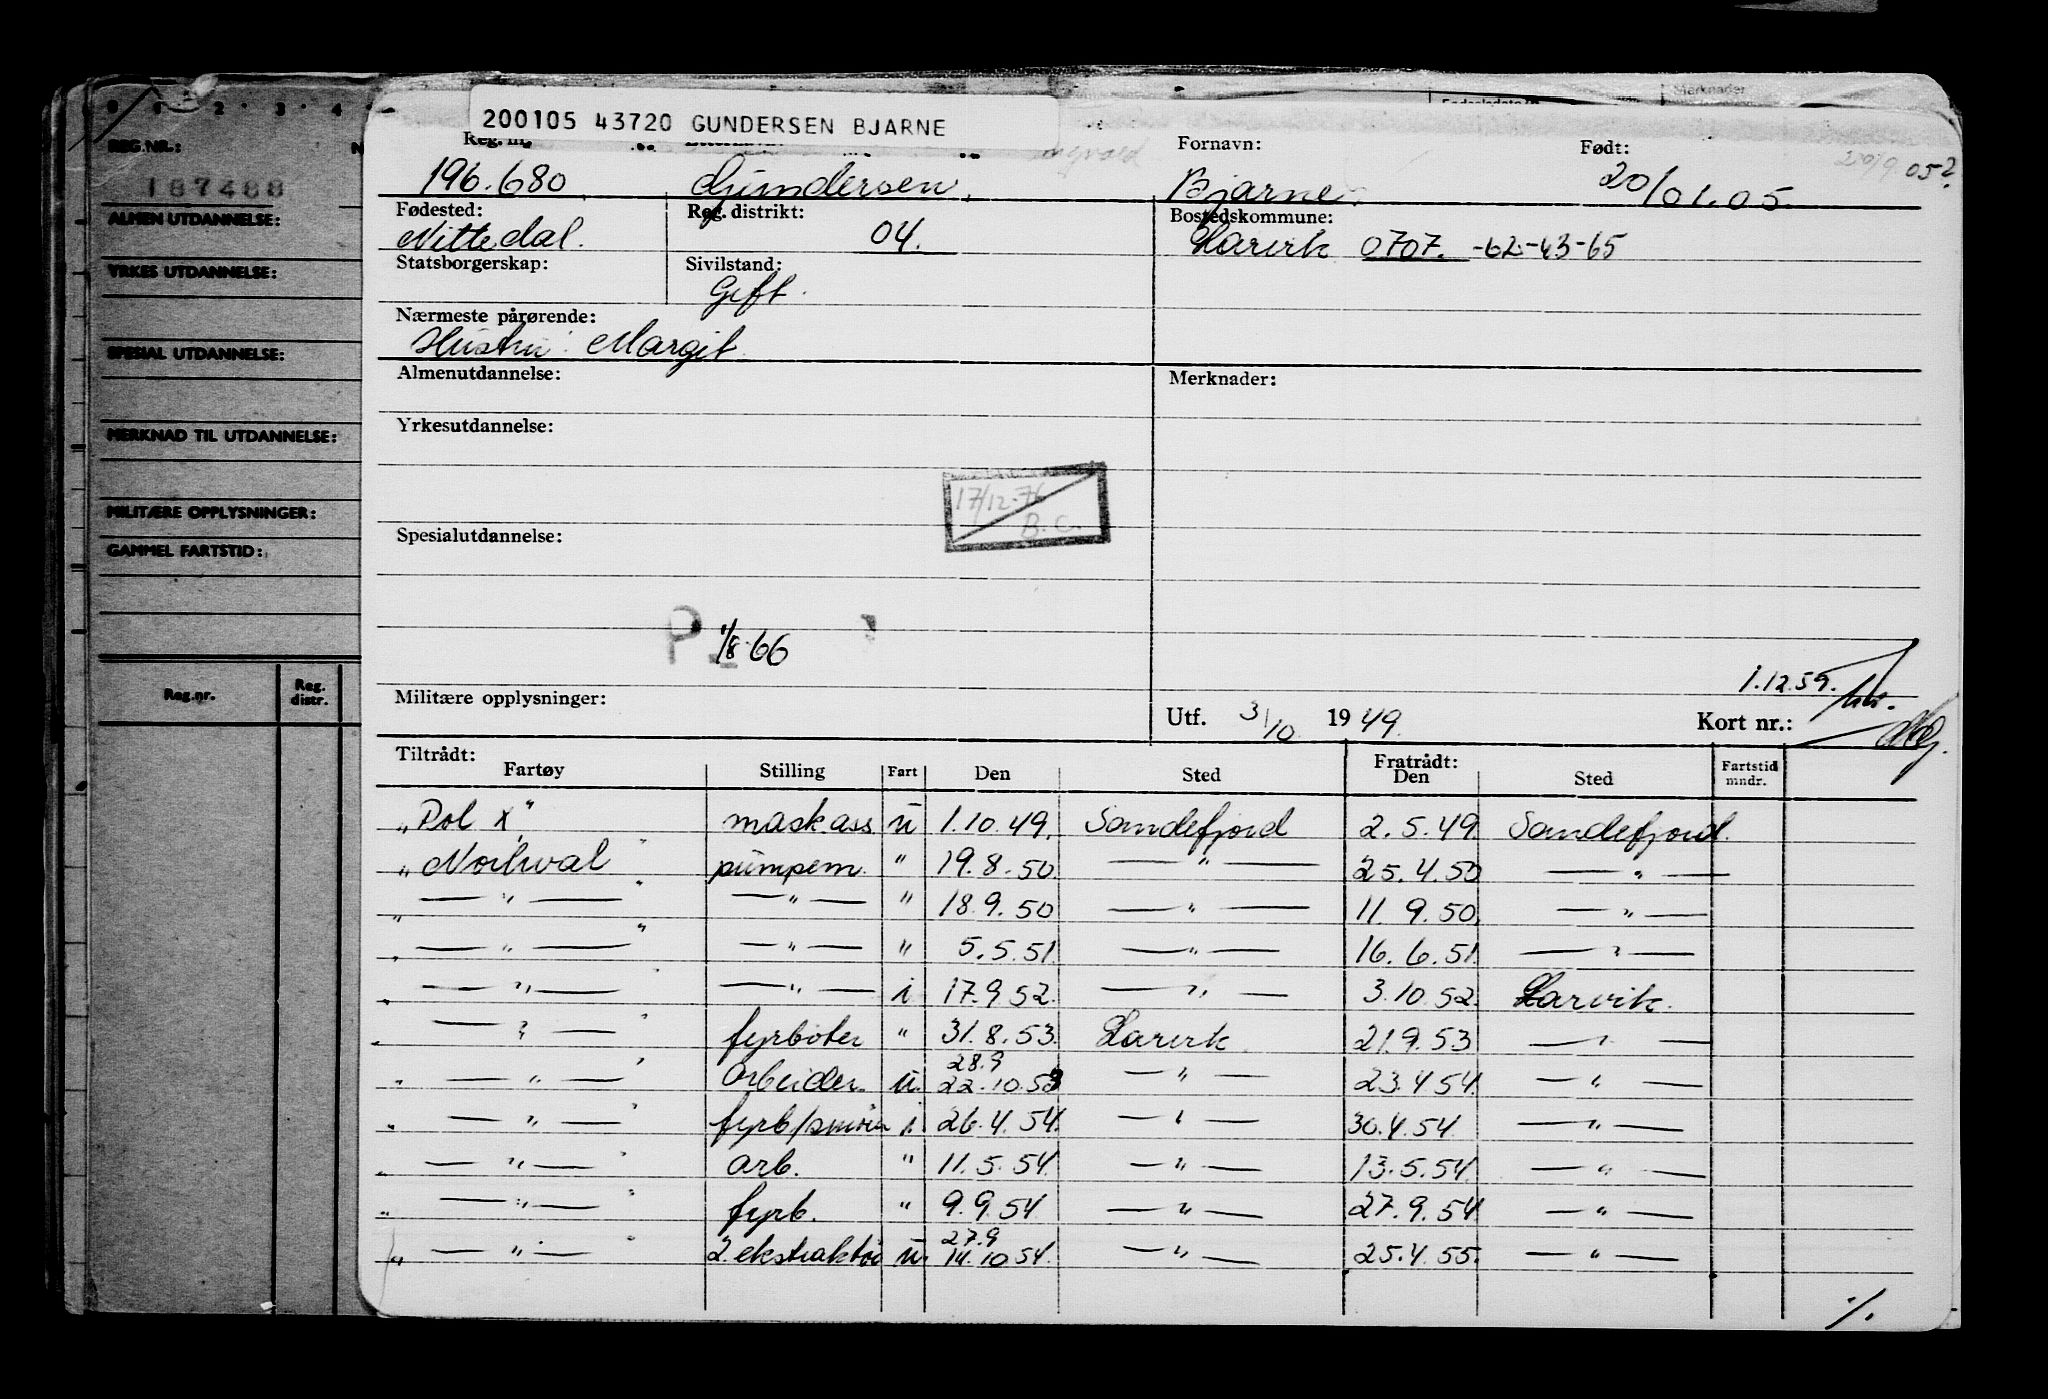 0 1 2 3 4
Merknader
200105 43720 GUNDERSEN BJARNE
REG.NR.:
187488
ALMEN UTDANNELSE:
YRKES UTDANNELSE:
SPESIAL UTDANNELSE:
MERKNAD TIL UTDANNELSE:
MILITÆRE OPPLYSNINGER:
GAMMEL FARTSTID:
Reg.nr. Reg. distr.
Reg. nr. Fornavn: Født:
196.680 Gundersen Bjarne. 20/01.05. 05?
Fødested: Reg. distrikt: Bostedskommune:
Nittedal. 04. Larvik 0707. -62-43-65
Statsborgerskap: Sivilstand:
Gift.
Nærmeste pårørende:
Hustru: Margit.
Almenutdannelse: Merknader:
Yrkesutdannelse:
17/12-76
B.C.
Spesialutdannelse:
P 1/8-66
1.12.59.
Militære opplysninger: Utf. 31/10 1949. Kort nr.:
Tiltrådt: Fratrådt:
Fartøy Stilling Fart Den Sted Den Sted Fartstid mndr.
"Pol X" mask ass u 1.10.49. Sandefjord 2.5.49. Sandefjord.
"Norhval" pumpem. " 19.8.50. — " — 25.4.50 — " —
" — " — " — " — " 18.9.50 — " — 11.9.50. — " —
" — " — " — " — " 5.5.51. — " — 16.6.51. — " —
" — " — " — " — i 17.9.52. — " — 3.10.52. Larvik.
" — " — " fyrbøter " 31.8.53. Larvik. 21.9.53 — " —
28.9
" — " — " arbeider u. 22.10.53 — " — 23.4.54. — " —
" — " — " fyrb/smører i. 26.4.54. — " — 30.4.54. — " —
" — " — " arb. " 11.5.54. — " — 13.5.54. — " —
" — " — " fyrb. " 9.9.54 — " — 27.9.54 — " —
27.9
" — " — " 2. ekstraktør u. 14.10.54. — " — 25.4.55. — " —
./.